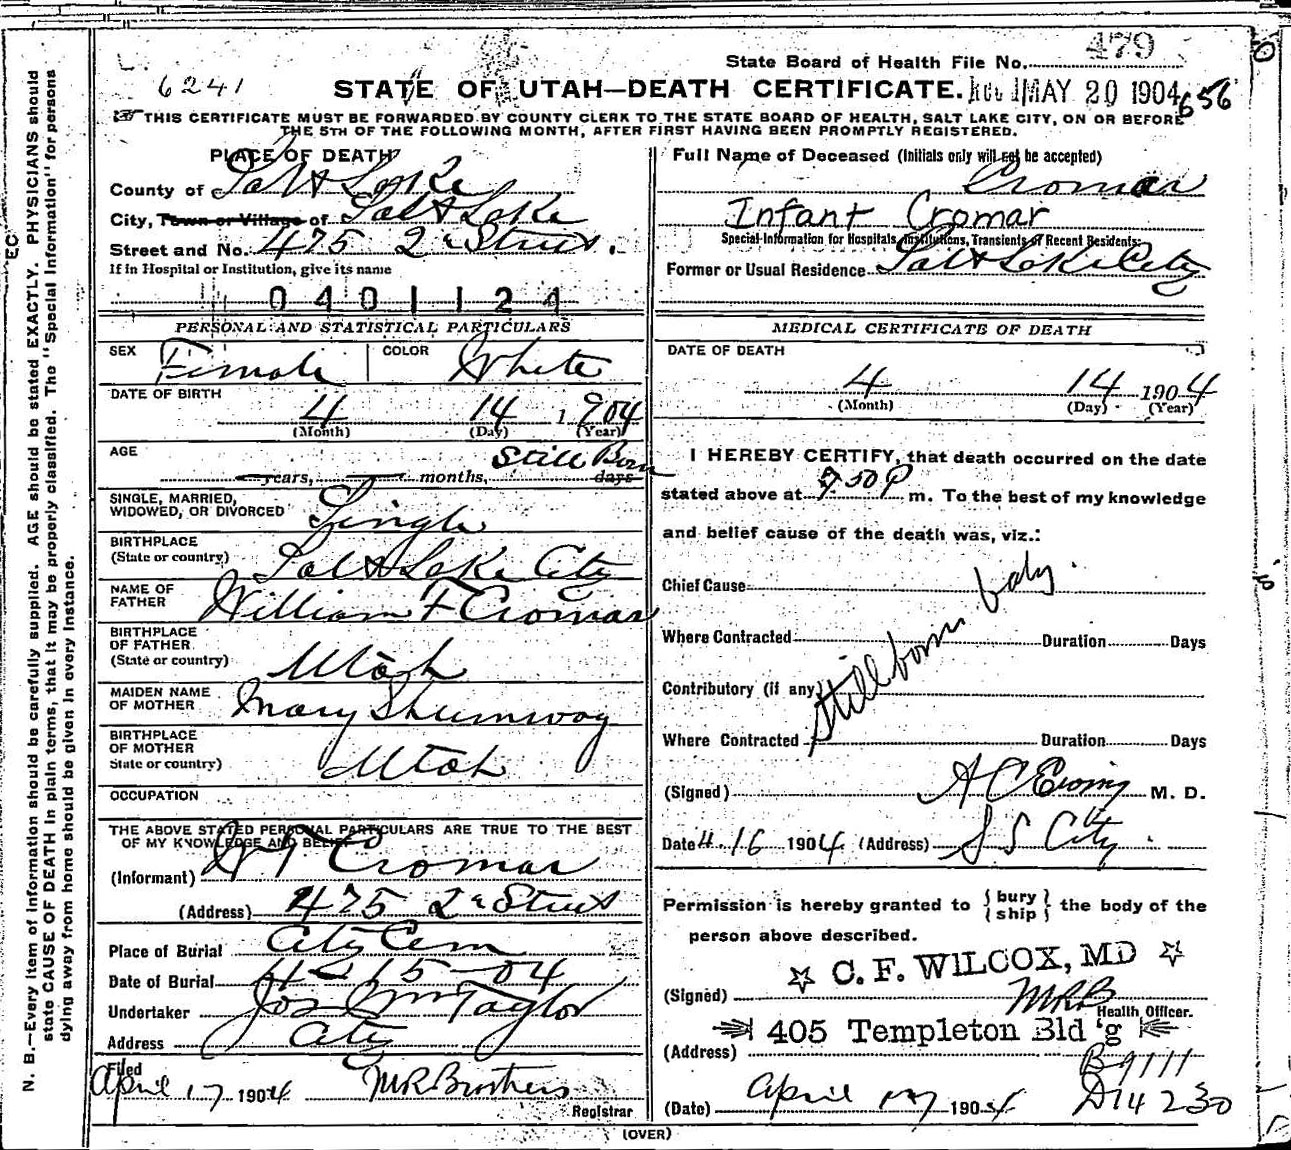 State Board of Health File No. 479
6241
STATE OF UTAH—DEATH CERTIFICATE.
MAY 20 1904 656
THIS CERTIFICATE MUST BE FORWARDED BY COUNTY CLERK TO THE STATE BOARD OF HEALTH, SALT LAKE CITY, ON OR BEFORE
THE 5TH OF THE FOLLOWING MONTH, AFTER FIRST HAVING BEEN PROMPTLY REGISTERED.
N. B.—Every item of information should be carefully supplied. AGE should be stated EXACTLY. PHYSICIANS should
state CAUSE OF DEATH in plain terms, that it may be properly classified. The "Special Information" for persons
dying away from home should be given in every instance.
EC
PLACE OF DEATH
County of Salt Lake
City, Town or Village of Salt Lake
Street and No. 475 2d Street.
If in Hospital or Institution, give its name
0401124
PERSONAL AND STATISTICAL PARTICULARS
SEX Female COLOR White
DATE OF BIRTH
4 14 1904
(Month) (Day) (Year)
AGE
Still Born
years, months, days
SINGLE, MARRIED,
WIDOWED, OR DIVORCED Single
BIRTHPLACE
(State or country) Salt Lake City
NAME OF
FATHER William F Cromar
BIRTHPLACE
OF FATHER
(State or country) Utah
MAIDEN NAME
OF MOTHER Mary Shumway
BIRTHPLACE
OF MOTHER
State or country) Utah
OCCUPATION
THE ABOVE STATED PERSONAL PARTICULARS ARE TRUE TO THE BEST
OF MY KNOWLEDGE AND BELIEF
(Informant) W F Cromar
(Address) 475 2d Street
Place of Burial City Cem
Date of Burial 4-15-04
Undertaker Jos Wm Taylor
Address City
Filed
April 17 1904 M R Brothers
Registrar
Full Name of Deceased (Initials only will not be accepted)
Cromar
Infant Cromar
Special Information for Hospitals, Institutions, Transients or Recent Residents:
Former or Usual Residence Salt Lake City
MEDICAL CERTIFICATE OF DEATH
DATE OF DEATH
4 14 1904
(Month) (Day) (Year)
I HEREBY CERTIFY, that death occurred on the date
stated above at 50 P m. To the best of my knowledge
and belief cause of the death was, viz.:
Chief Cause
Where Contracted Duration Days
Contributory (if any)
Where Contracted Duration Days
Stillborn baby.
(Signed) A C Ewing M. D.
Date 4.16 1904 (Address) S L City
Permission is hereby granted to { bury / ship } the body of the
person above described.
C. F. WILCOX, MD
(Signed) MRB
Health Officer.
405 Templeton Bld'g
(Address)
B9111
(Date) April 17 1904 D14230
(OVER)